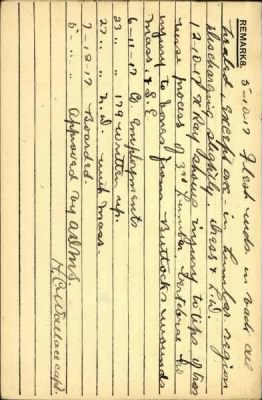 REMARKS.
5-10-17 Flesh wounds in back all
healed except one - in lumbar region
discharging slightly. Mass & L.D.
12-10-17 X Ray shows injury to tips of
nerse process of 3rd Lumbar Vertebrae
injury to bones from Buttock wounds
Mass. & S.E
6-11-17 O. Employments
23 " " 179 written up.
27 " " N.D. with mass.
7-12-17 Boarded.
8 " " Approved by ADMS
Wallace Capt